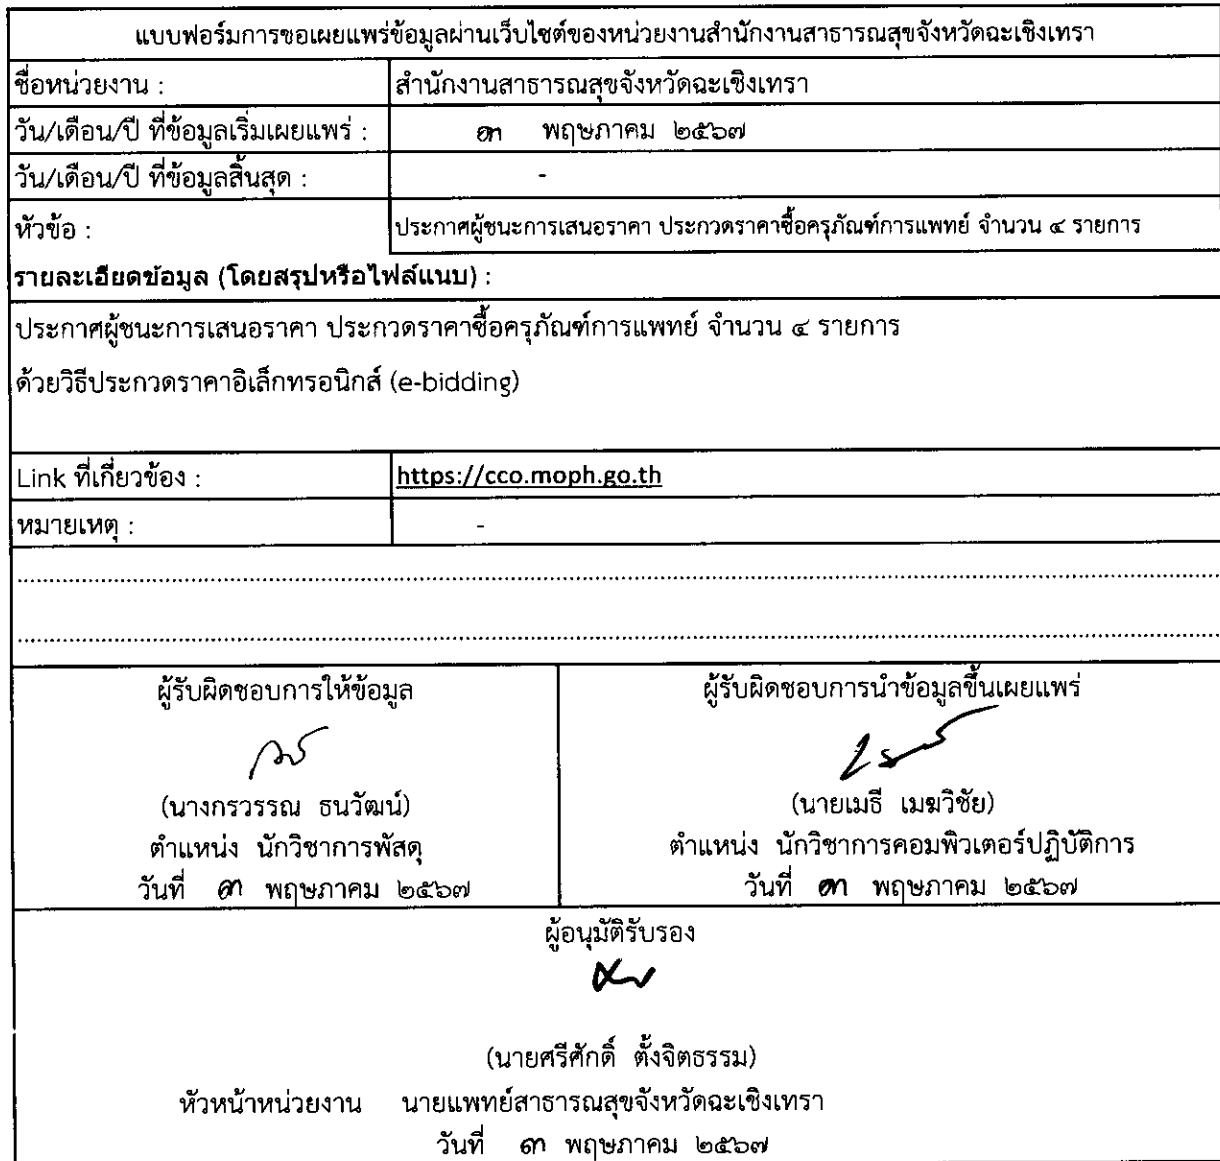 แบบฟอร์มการขอเผยแพร่ข้อมูลผ่านเว็บไซต์ของหน่วยงานสำนักงานสาธารณสุขจังหวัดฉะเชิงเทรา
ชื่อหน่วยงาน : สำนักงานสาธารณสุขจังหวัดฉะเชิงเทรา
วัน/เดือน/ปี ที่ข้อมูลเริ่มเผยแพร่ : ๓ พฤษภาคม ๒๕๖๗
วัน/เดือน/ปี ที่ข้อมูลสิ้นสุด : -
หัวข้อ : ประกาศผู้ชนะการเสนอราคา ประกวดราคาซื้อครุภัณฑ์การแพทย์ จำนวน ๔ รายการ
รายละเอียดข้อมูล (โดยสรุปหรือไฟล์แนบ) :
ประกาศผู้ชนะการเสนอราคา ประกวดราคาซื้อครุภัณฑ์การแพทย์ จำนวน ๔ รายการ
ด้วยวิธีประกวดราคาอิเล็กทรอนิกส์ (e-bidding)
Link ที่เกี่ยวข้อง : https://cco.moph.go.th
หมายเหตุ : -
ผู้รับผิดชอบการให้ข้อมูล
(นางกรวรรณ ธนวัฒน์)
ตำแหน่ง นักวิชาการพัสดุ
วันที่ ๓ พฤษภาคม ๒๕๖๗
ผู้รับผิดชอบการนำข้อมูลขึ้นเผยแพร่
(นายเมธี เมฆวิชัย)
ตำแหน่ง นักวิชาการคอมพิวเตอร์ปฏิบัติการ
วันที่ ๓ พฤษภาคม ๒๕๖๗
ผู้อนุมัติรับรอง
(นายศรีศักดิ์ ตั้งจิตธรรม)
หัวหน้าหน่วยงาน นายแพทย์สาธารณสุขจังหวัดฉะเชิงเทรา
วันที่ ๓ พฤษภาคม ๒๕๖๗